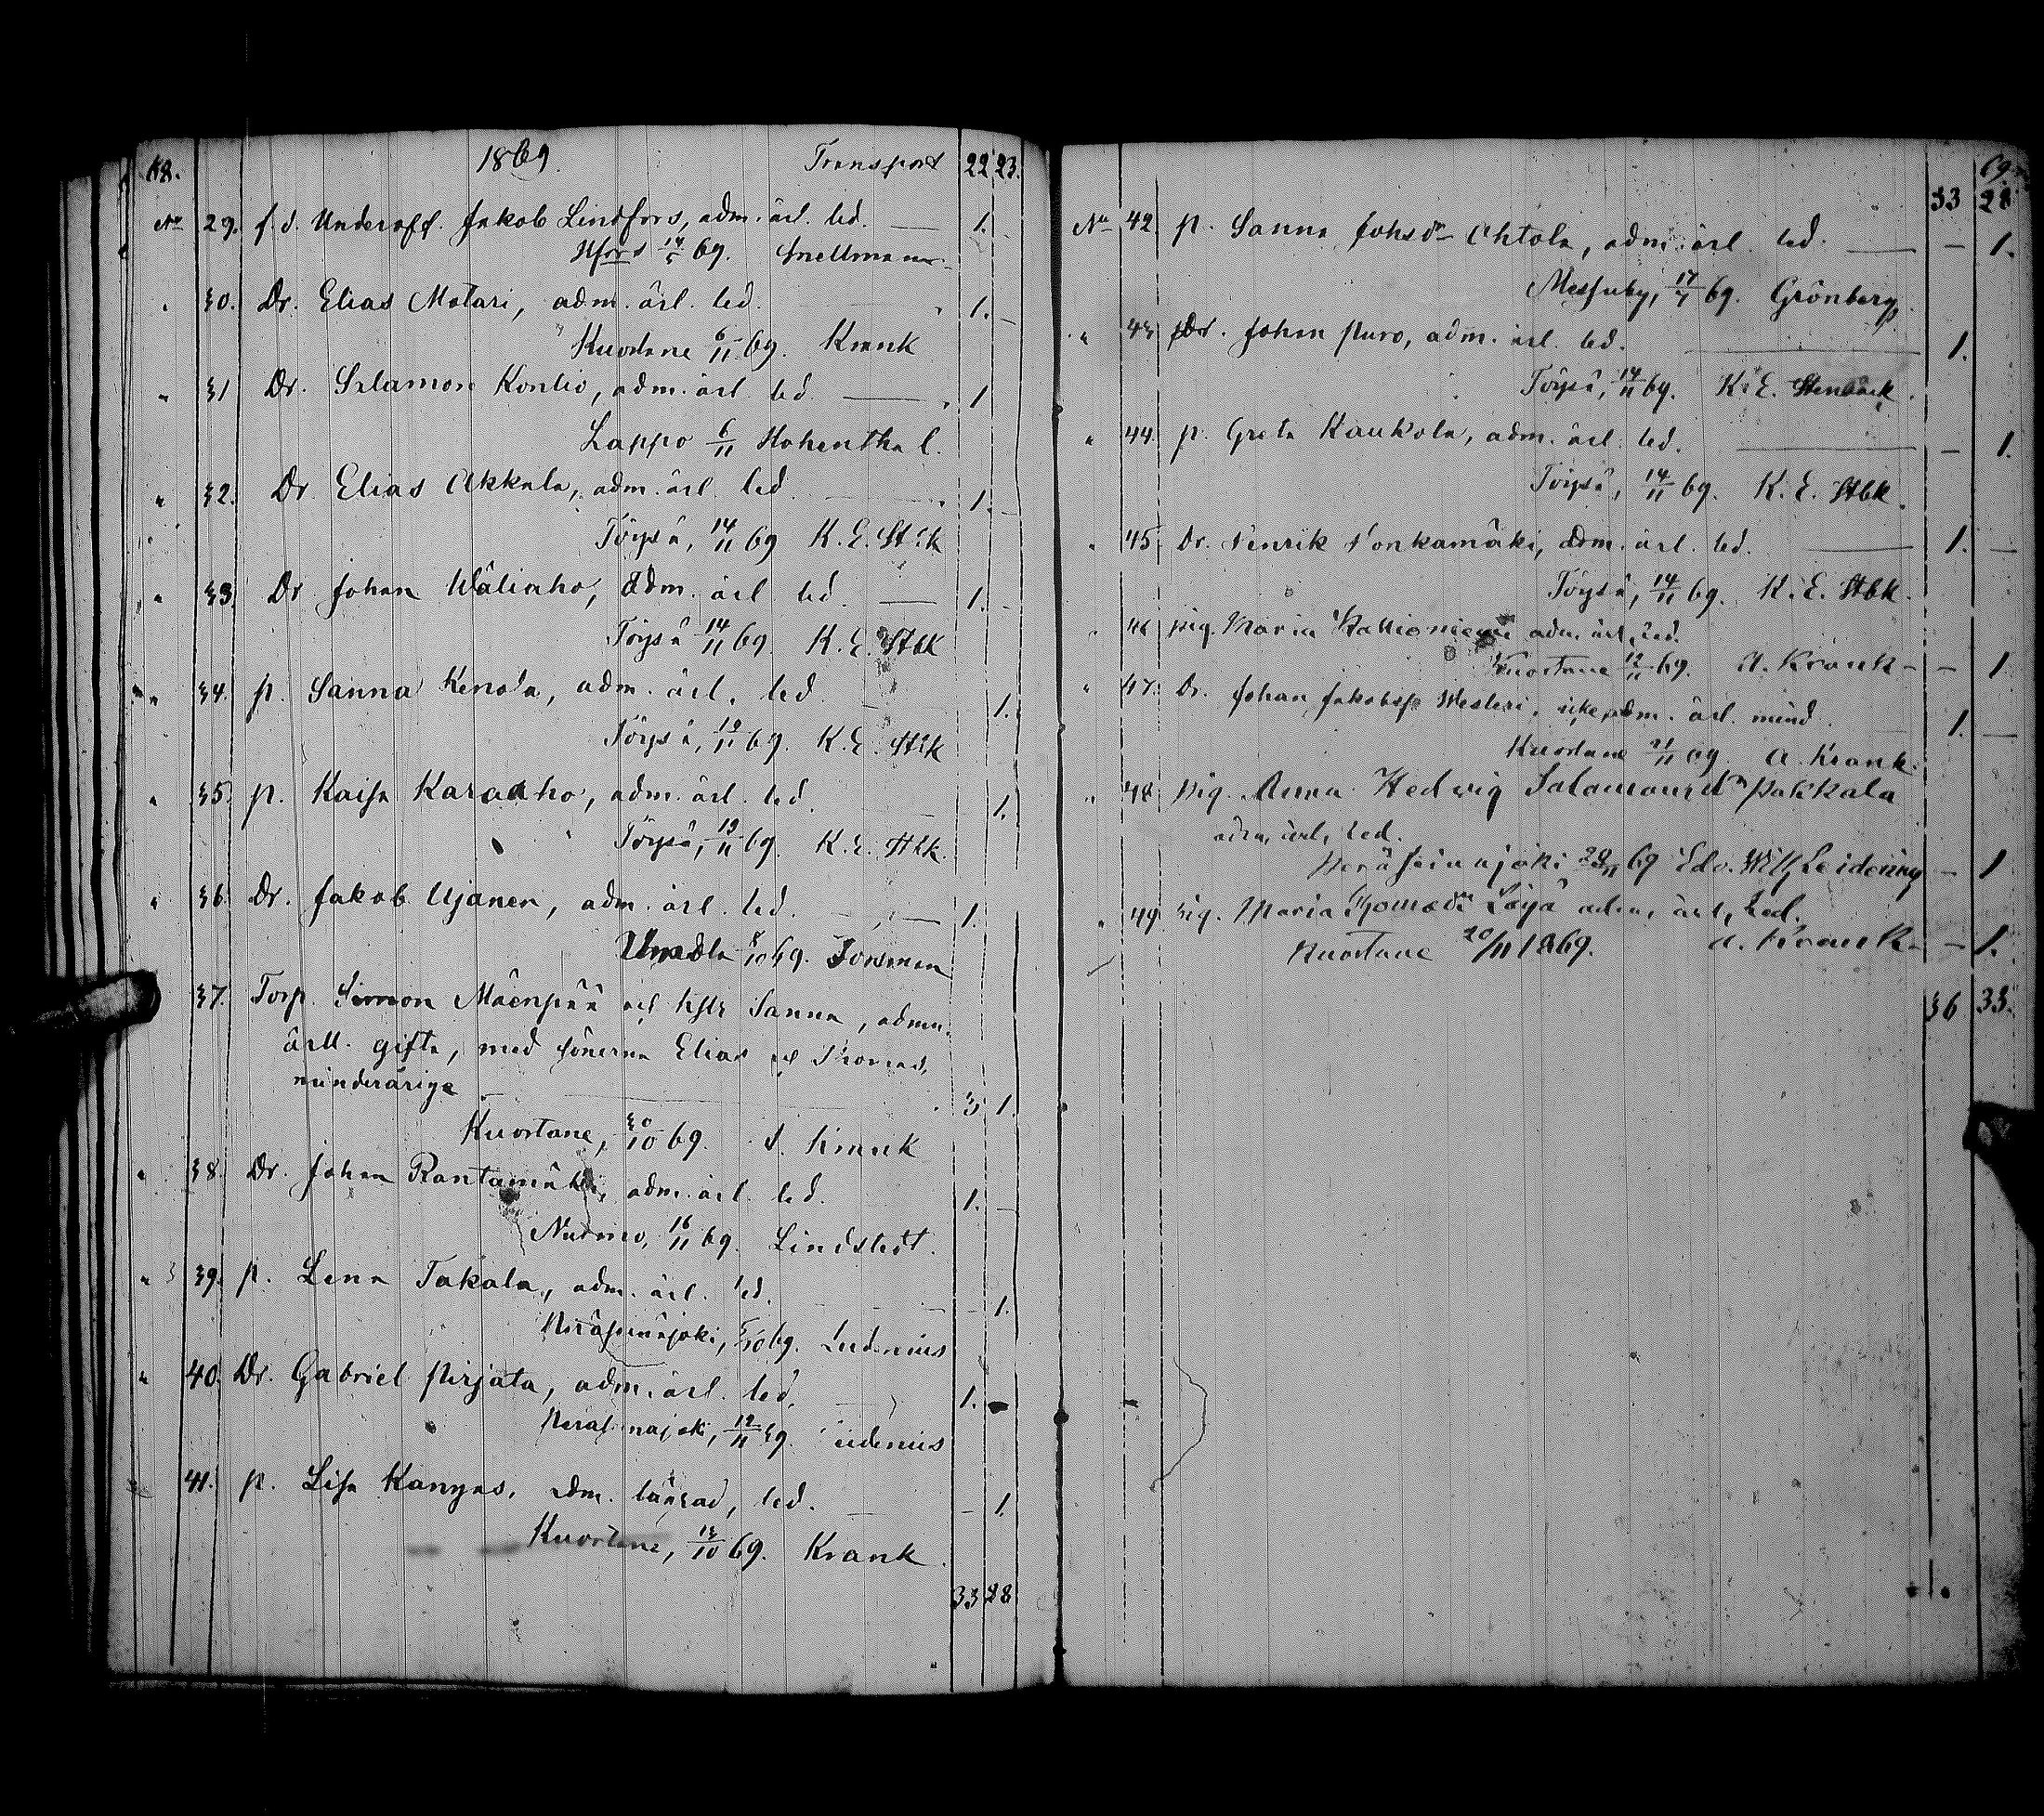 68. 1869. Transport 22 23.
No 29. f. d. Underoff. Jakob Lindfors, adm. ärl. led. — 1. -
Hfors 14/5 69. Snellman
" 30. Dr. Elias Motari, adm. ärl. led. " 1. -
Kuortane 6/11 69. Krank
" 31 Dr. Salamon Kontio, adm. ärl. led. — " 1
Lappo 6/11 Hohenthal.
" 32. Dr. Elias Akkala, adm. ärl. led. " 1. -
Töysä, 14/11 69 K. E. Stbk
" 33. Dr. Johan Wäliaho, adm. ärl led. — 1. -
Töysä 14/11 69. K. E. Stbk
" 34. p. Sanna Kenola, adm. ärl. led. 1.
Töysä, 19/11 69. K. E. Stbk
" 35. p. Kaisa Karaaho, adm. ärl. led. 1.
Töysä, 19/11 69. K. E. Stbk.
" 36. Dr. Jakob Ujanen, adm. ärl. led. — 1.
/10 69. Forsman
37. Torp. Simon Mäenpää och hstr Sanna, adm.
ärll. gifta, med sönerna Elias och Thomas,
minderåriga 3 1.
Kuortane, 30/10 69. Krank
" 38. Dr. Johan Rantamäki, adm. ärl. led. 1. -
Nurmo, 16/11 69. Lindstedt.
" 39. p. Lena Takala, adm. ärl. led. - 1.
Peräseinäjoki, /10 69. Leidenius
" 40. Dr. Gabriel Pirjata, adm. ärl. led. 1. -
Peräseinäjoki, 12/11 69. Leidenius
41. p. Lisa Kangas, adm. led. - 1.
Kuortane, 13/10 69. Krank.
33 28
69.
33 28
No 42. p. Sanna Johsdr Ohtola, adm. ärl. led. — - 1.
Messuby, 17/7 69. Grönberg.
" 43. Dr. Johan Puro, adm. ärl. led. — 1.
Töysä, 14/11 69. K. E. Stenbäck.
" 44. p. Greta Kaukola, adm. ärl. led. — - 1.
Töysä, 14/11 69. K. E. Stbk.
" 45. Dr. Henrik Honkamäki, adm. ärl. led. — 1. -
Töysä, 14/11 69. K. E. Stbk.
" 46 pig. Maria Kallioniemi adm. ärl. led.
Kuortane 12/11 69. A. Krank - - 1
" 47. Dr. Johan Jakobsp Westeri, icke adm. ärl. mind. 1. -
Kuortane 21/11 69. A. Krank.
" 48 pig. Anna Hedwig Salamonsdr Pakkala
adm, ärl, led.
Peräseinäjoki 20/11 69 Edv. Wilh Leidenius - 1
" 49. pig. Maria Thomasdr Löijä adm, ärl, led.
Kuortane 20/11 1869. A. Krank - - 1.
36 33.